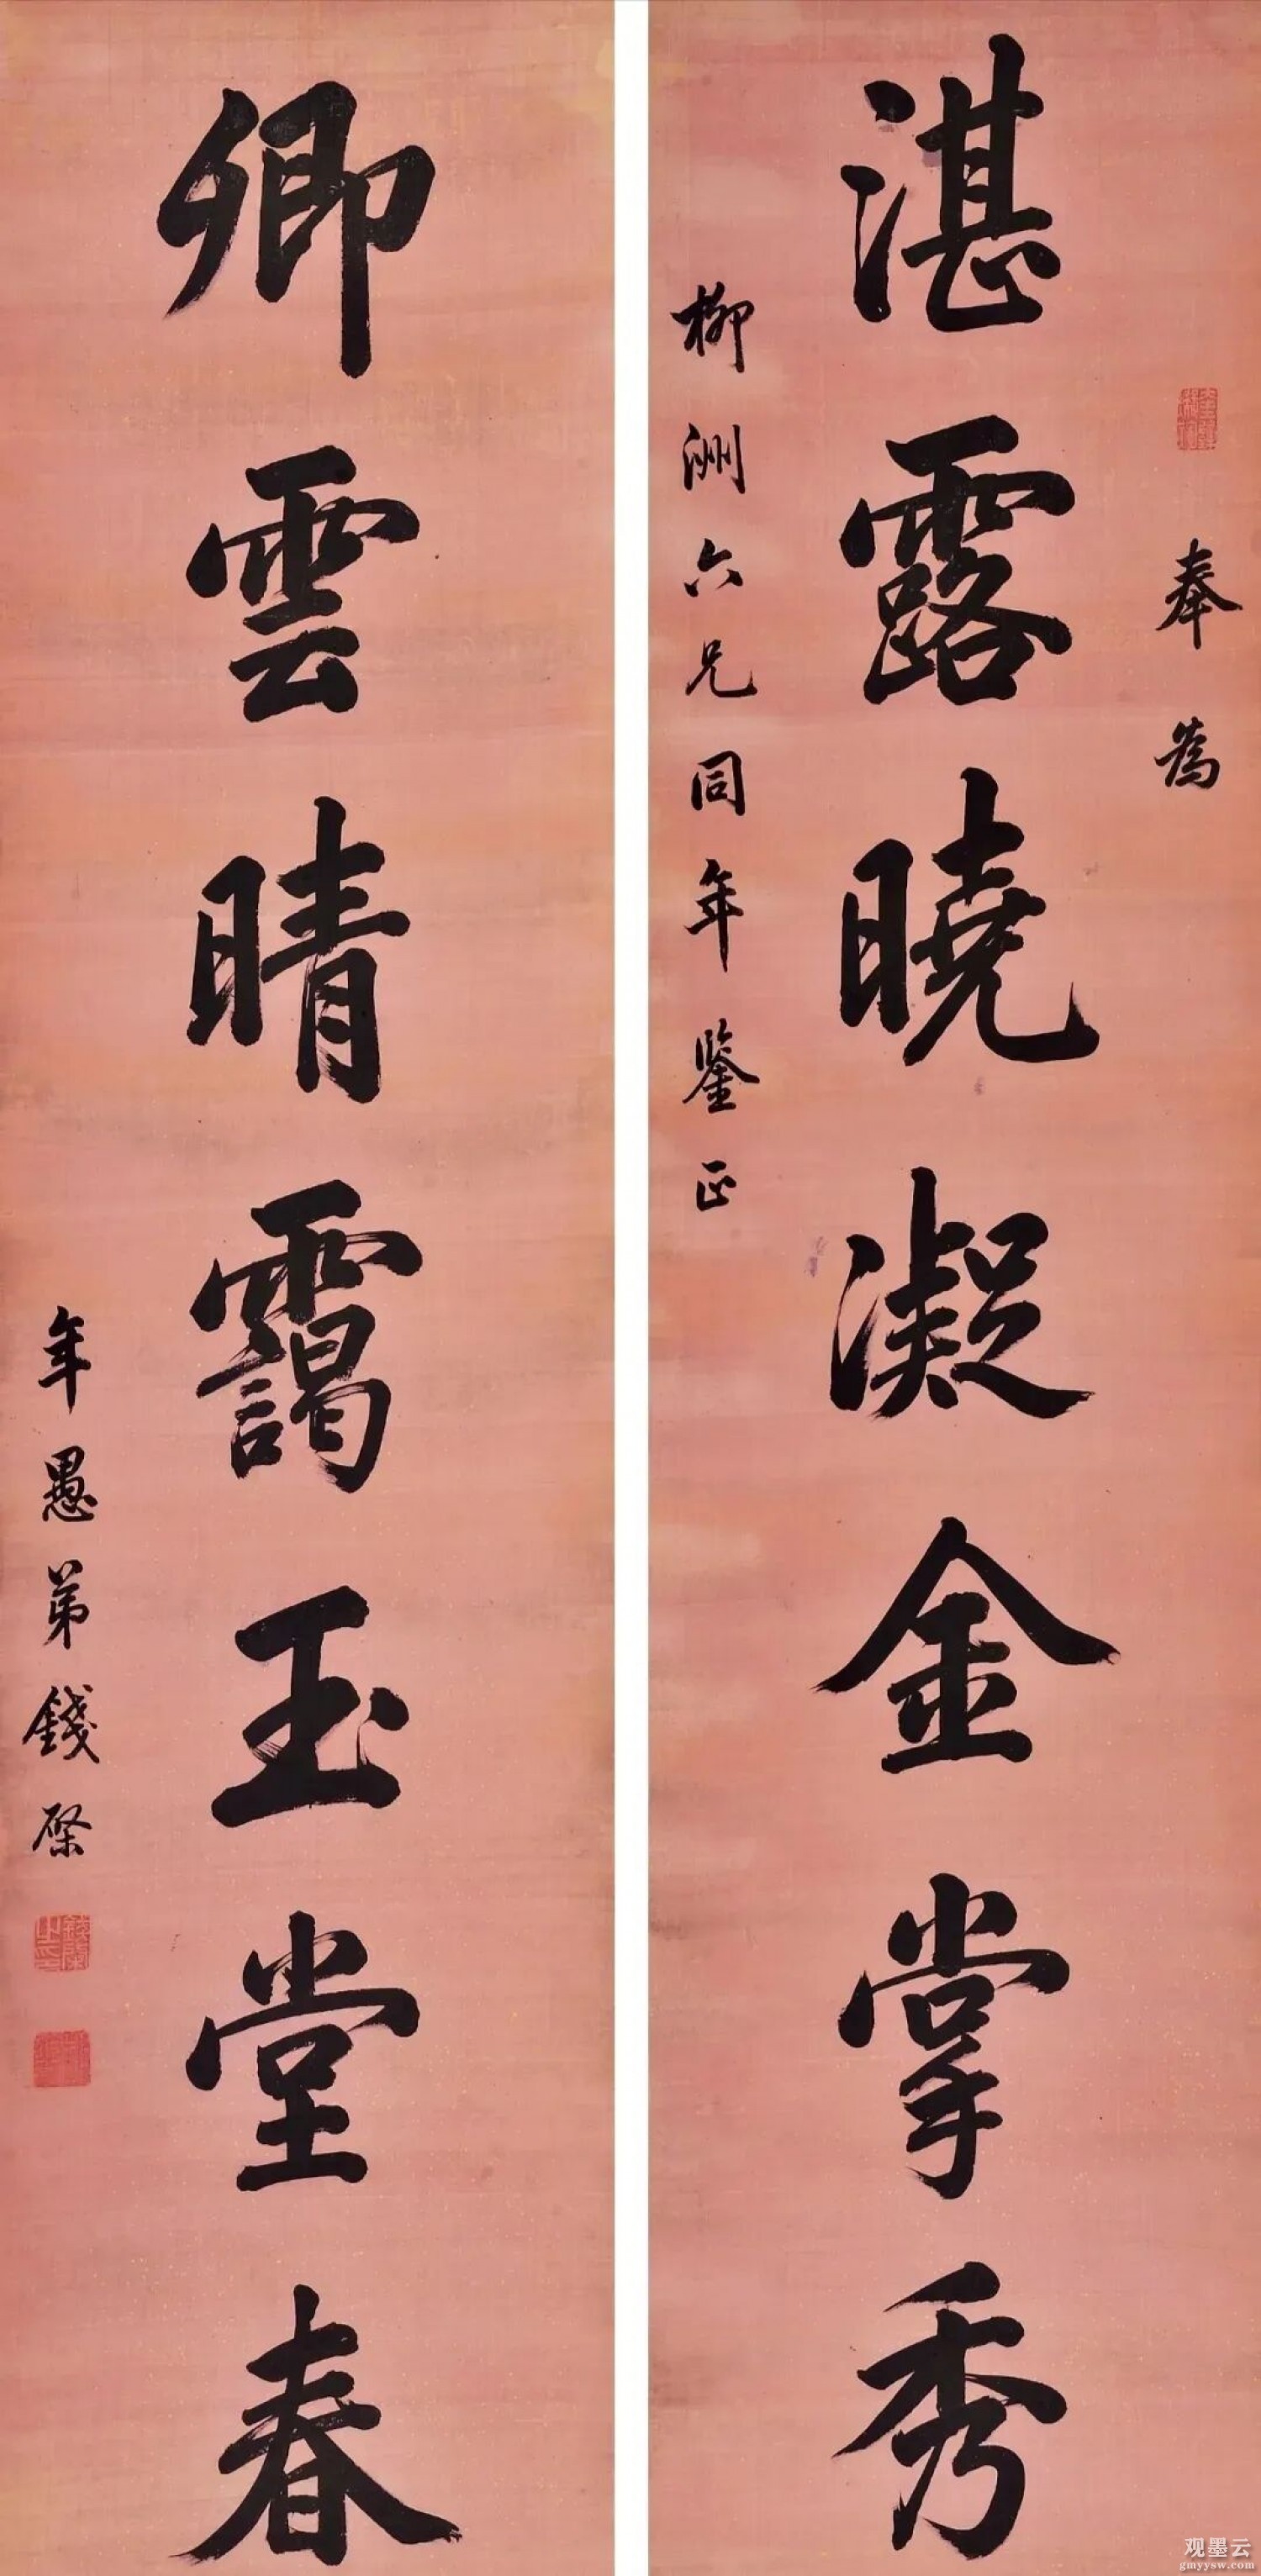 奉為
湛露曉凝金掌秀
柳洲六兄同年鑒正
卿雲晴靄玉堂春
年愚弟錢棨
观墨云
gmyysw.com